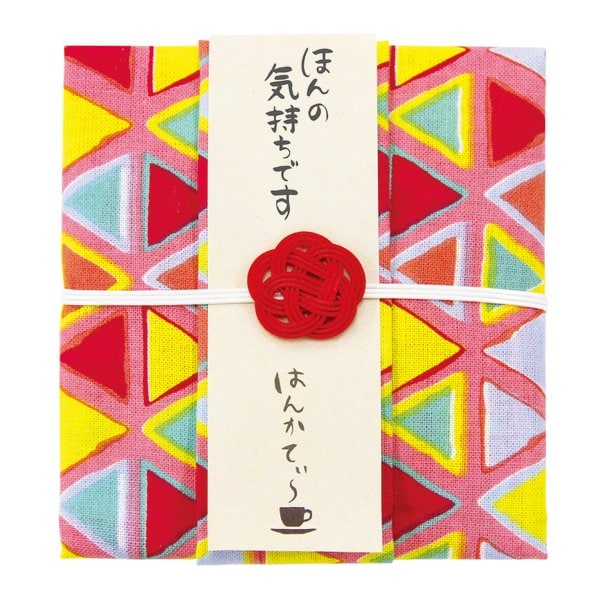 ほんの
気持ちです
はんかてぃ～